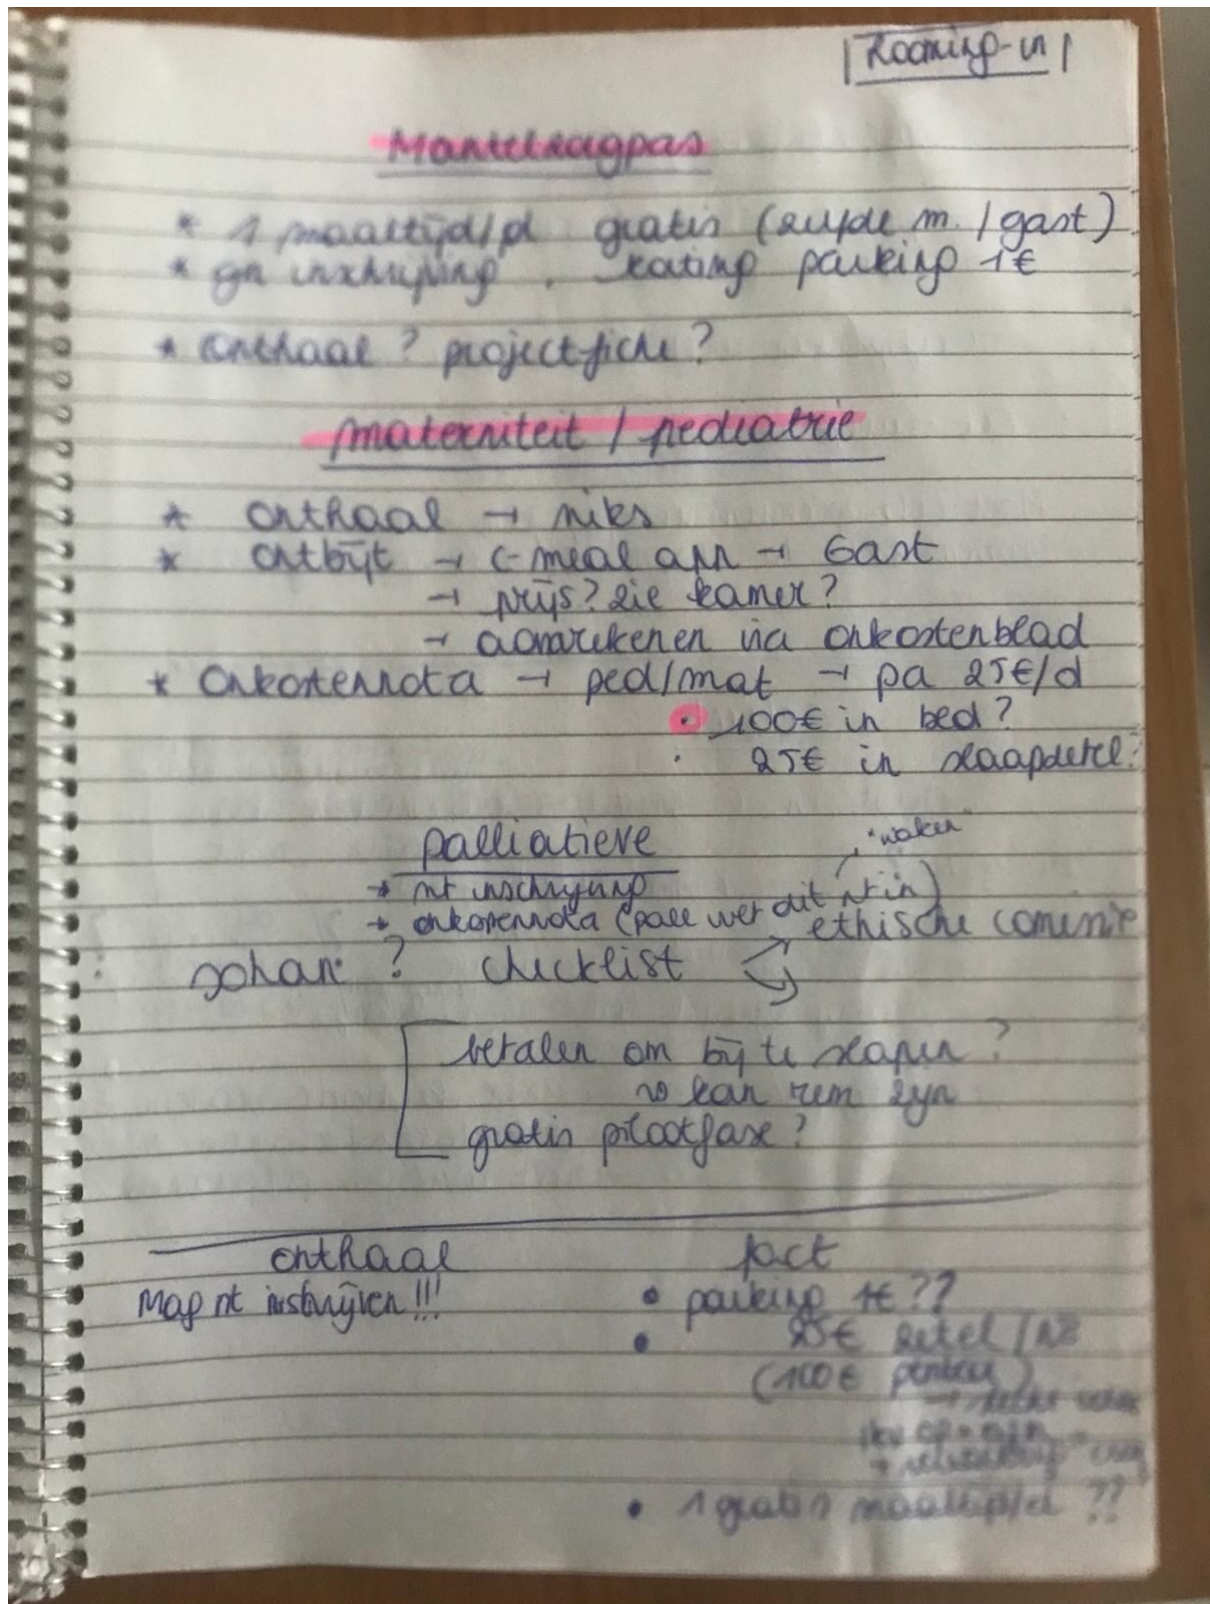 Rooming-in
Mantelzorgpas
* 1 maaltijd/d gratis (zelfde m. / gast)
* gn inschrijving. korting parking 1€
* onthaal ? projectfiche ?
materniteit / pediatrie
* onthaal → niks
* ontbijt → c-meal app → Gast
→ prijs? zie kamer?
→ aanrekenen via onkostenblad
* onkostennota → ped/mat → pa 25€/d
• 100€ in bed?
· 25€ in slaapzetel?
"waken"
palliatieve
→ nt inschrijving
→ onkostennota (pall wer dit nt in)
ethische
johan ? checklist
betalen om bij te slapen?
kan rem zijn
gratis pilootfase?
onthaal fact
Mag nt inschrijven!!!
• parking 1€ ??
• 25€ zetel /
(100€
• 1 gratis maaltijd/d ??